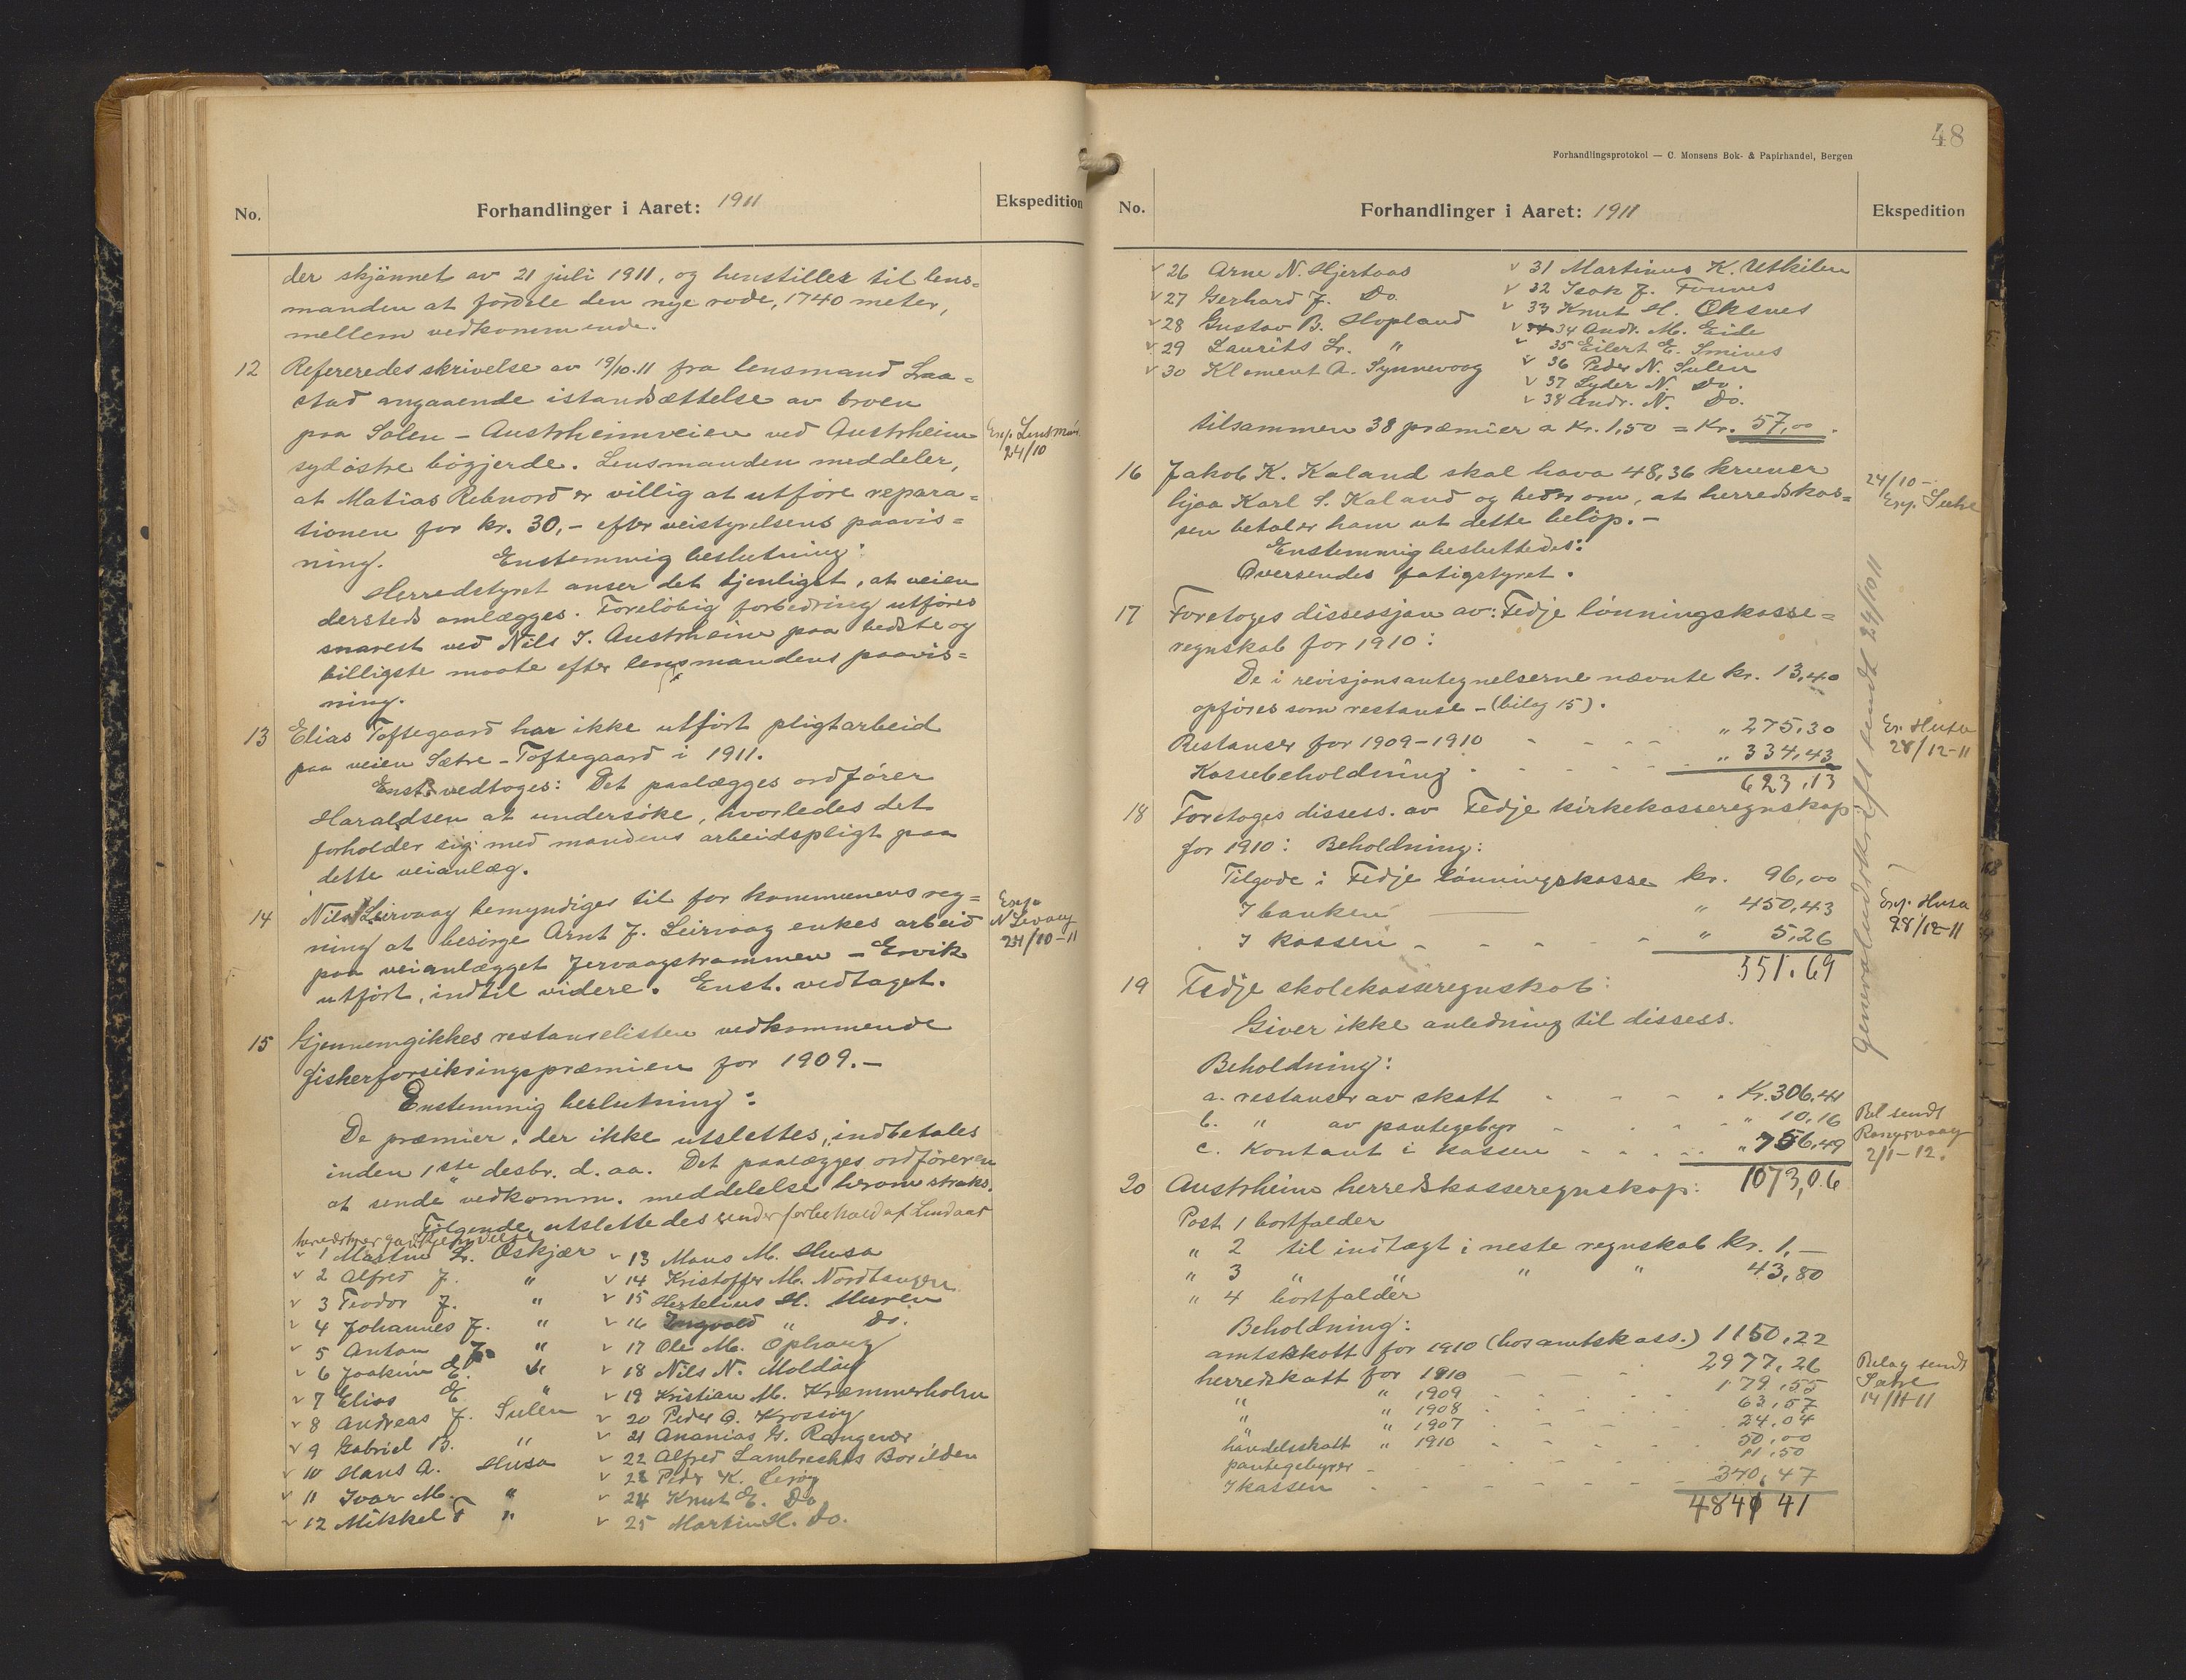 No.
Forhandlinger i Aaret: 1911
Ekspedition
der skjönnet av 21 juli 1911, og henstilles til lens=
manden at fordele den nye rode, 1740 meter,
mellem vedkommende.
12 Refereredes skrivelse av 19/10.11 fra lensmand Laa=
stad angaaende istandsættelse av broen
paa Solen - Austrheimveien ved Austrheim
sydöstre bögjerde. Lensmanden meddeler,
at Matias Rebnord er villig at utföre repara=
tionen for kr. 30,- efter veistyrelsens paavis=
ning. Enstemmig beslutning:
Herredstyret anser det tjenligst, at veien
dersteds omlægges. Forelöbig forbedring utföres
snarest ved Nils J. Austrheim paa bedste og
billigste maate efter lensmandens paavis=
ning.
Exp. Lensmd.
24/10
13 Elias Toftegaard har ikke utfört pligtarbeid
paa veien Sætre - Toftegaard i 1911.
Enst. vedtoges: Det paalægges ordförer
Haraldsen at undersöke, hvorledes det
forholder sig med mandens arbeidspligt paa
dette veianlæg.
14 Nils Leirvaag bemyndiges til for kommunens reg=
ning at besörge Arnt J. Leirvaag enkes arbeid
paa veianlægget Jervaagstrammen - Ervik
utfört, indtil videre. Enst. vedtaget.
Exp.
N Levaag
24/10-11
15 Gjennemgikkes restanselisten vedkommende
fiskerforsikringspræmien for 1909.-
Enstemmig beslutning:
De præmier, der ikke utslettes, indbetales
inden 1ste desbr. d. aa. Det paalægges ordföreren
at sende vedkomm. meddelelse herom straks.
Fölgende utslettedes under forbehold af Lindaas
v 1 Martin Lr. Oskjær
v 2 Alfred J. "
v 3 Teodor J. "
v 4 Johannes J. "
v 5 Anton J. "
v 6 Joakim E. "
v 7 Elias E. "
v 8 Andreas J. Sulen
v 9 Gabriel B. "
v 10 Hans A. Husa
v 11 Ivar M. "
v 12 Mikkel T "
v 13 Mons M. Husa
v 14 Kristoffer M. Nordtangen
v 15 Hertelius H. Muren
v 16 Ingvald " Do.
v 17 Ole M. Ophaug
v 18 Nils N. Molding
v 19 Kristian M. Kræmmerholm
v 20 Peder O. Krossöy
v 21 Ananias G. Rangevær
v 22 Alfred Lambrechts Borilden
v 23 Peder K. Leröy
v 24 Knut E. Do
v 25 Martin H. Do.
48
Forhandlingsprotokol — C. Monsens Bok- & Papirhandel, Bergen
No.
Forhandlinger i Aaret: 1911
Ekspedition
v 26 Arne N. Hjertaas
v 27 Gerhard J. Do.
v 28 Gustav B. Hopland
v 29 Laurits Lr. "
v 30 Klement A. Synnevaag
v 31 Martinus K. Utkilen
v 32 Isak J. Fonnes
v 33 Knut H. Oksnes
v 34 Andr. M. Eide
v 35 Eilert E. Smines
v 36 Peder N. Sulen
v 37 Lyder N. Do.
v 38 Andr. N. Do.
tilsammen 38 præmier a Kr. 1,50 = Kr. 57,00.
16 Jakob K. Kaland skal hava 48,36 kruner
hjaa Karl S. Kaland og beder om, at herredskas=
sen betaler ham ut dette belöp.-
Enstemmig besluttedes:
Oversendes fatigstyret.
24/10-
Exp.
17 Foretoges dissessjon av: Fedje lönningskasse=
regnskab for 1910:
De i revisjonsantegnelserne nævnte kr. 13,40
opföres som restanse - (bilag 15).
Restanser for 1909-1910 - - - - " 275,30
Kassebeholdning - - - - - " 334,43
623,13
Ex. Husa
28/12-11
Generaludskrift sendt 24/10 11
18 Foretoges dissess. av Fedje kirkekasseregnskap
for 1910: Beholdning:
Tilgode i Fedje lönningskasse kr. 96,00
I banken " 450,43
I kassen - - - - - " 5,26
551,69
Exp. Husa
28/12-11
19 Fedje skolekasseregnskab:
Giver ikke anledning til dissess.
Beholdning:
a. restanser av skatt - - - - Kr. 306,41
b. " av pantegebyr - - - - " 10,16
c. Kontant i kassen - - - - " 756,49
1073,06
Bel sendt
2/1-12.
20 Austrheim herredskasseregnskap:
Post 1 bortfalder
" 2 til indtægt i neste regnskab kr. 1,-
" 3 " " " " 43,80
" 4 bortfalder
Beholdning:
amtsskatt for 1910 (hos amtskass.) 1150,22
herredskatt for 1910 - - - 2977,26
" " 1909 - - - - 179,55
" " 1908 - - - - 63,57
" " 1907 - - - - 24,04
handelsskatt " 1910 - - - - 50,00
pantegebyrer - - - - 11,50
I kassen - - - - 340,47
4841 41
Belag sendt
Sætre
14/11-11